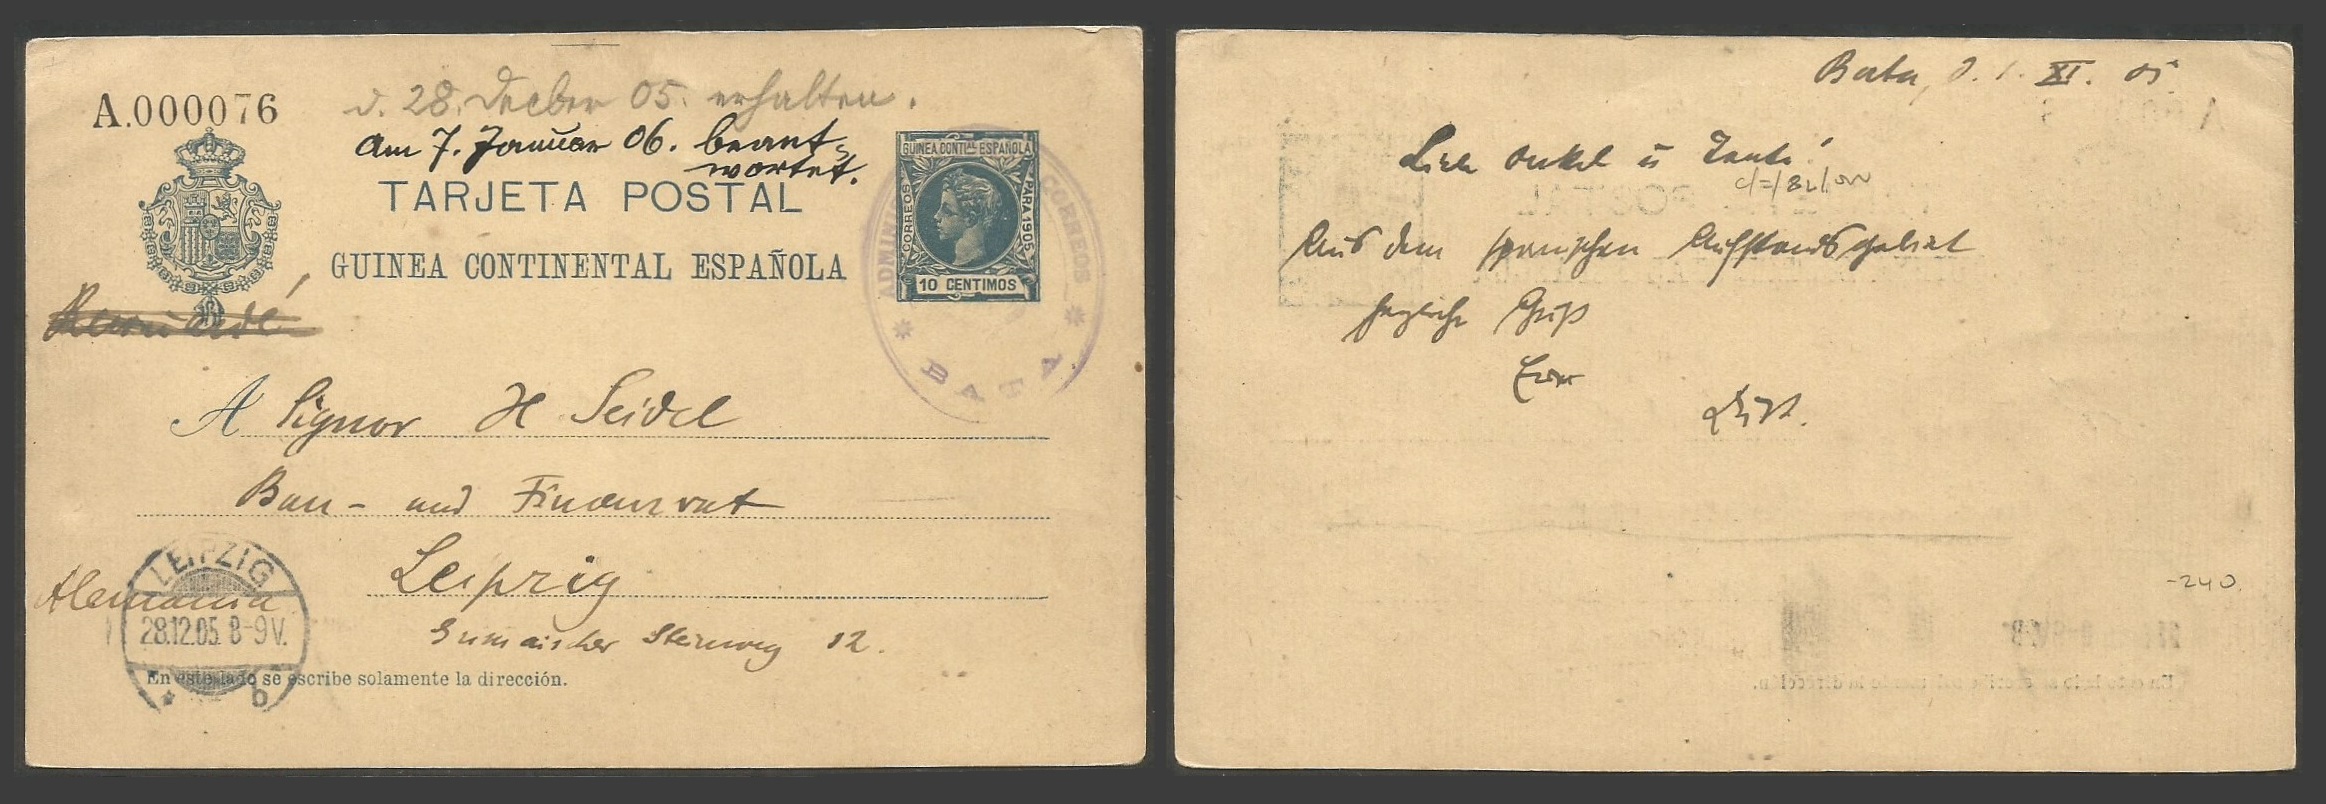 A.000076
d. 28. Decber 05. erhalten.
am 7. Januar 06. beant-
wortet.
TARJETA POSTAL
GUINEA CONTINENTAL ESPAÑOLA
GUINEA CONTIAL ESPAÑOLA
CORREOS
PARA 1905
10 CENTIMOS
CORREOS
BATA
A Signor H Seidel
Bau- und Finanzrat
Leipzig
Alemania
LEIPZIG
28.12.05 8-9V.
b
Steinweg 12.
En este lado se escribe solamente la dirección.
Bata, d. 1. XI. 05
Liebe Onkel u Tante!
Aus dem spanischen Aufstandsgebiet
herzliche Grüße
Euer
-240.